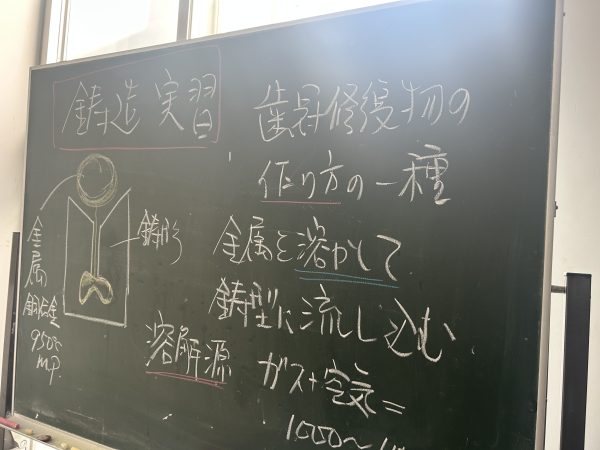 鋳造実習
歯牙修復物の
作り方の一種
金属を溶かして
鋳型に流し込む
溶解源 ガス+空気=
1000〜
鋳形
金属
銅合金
950℃
m.p.